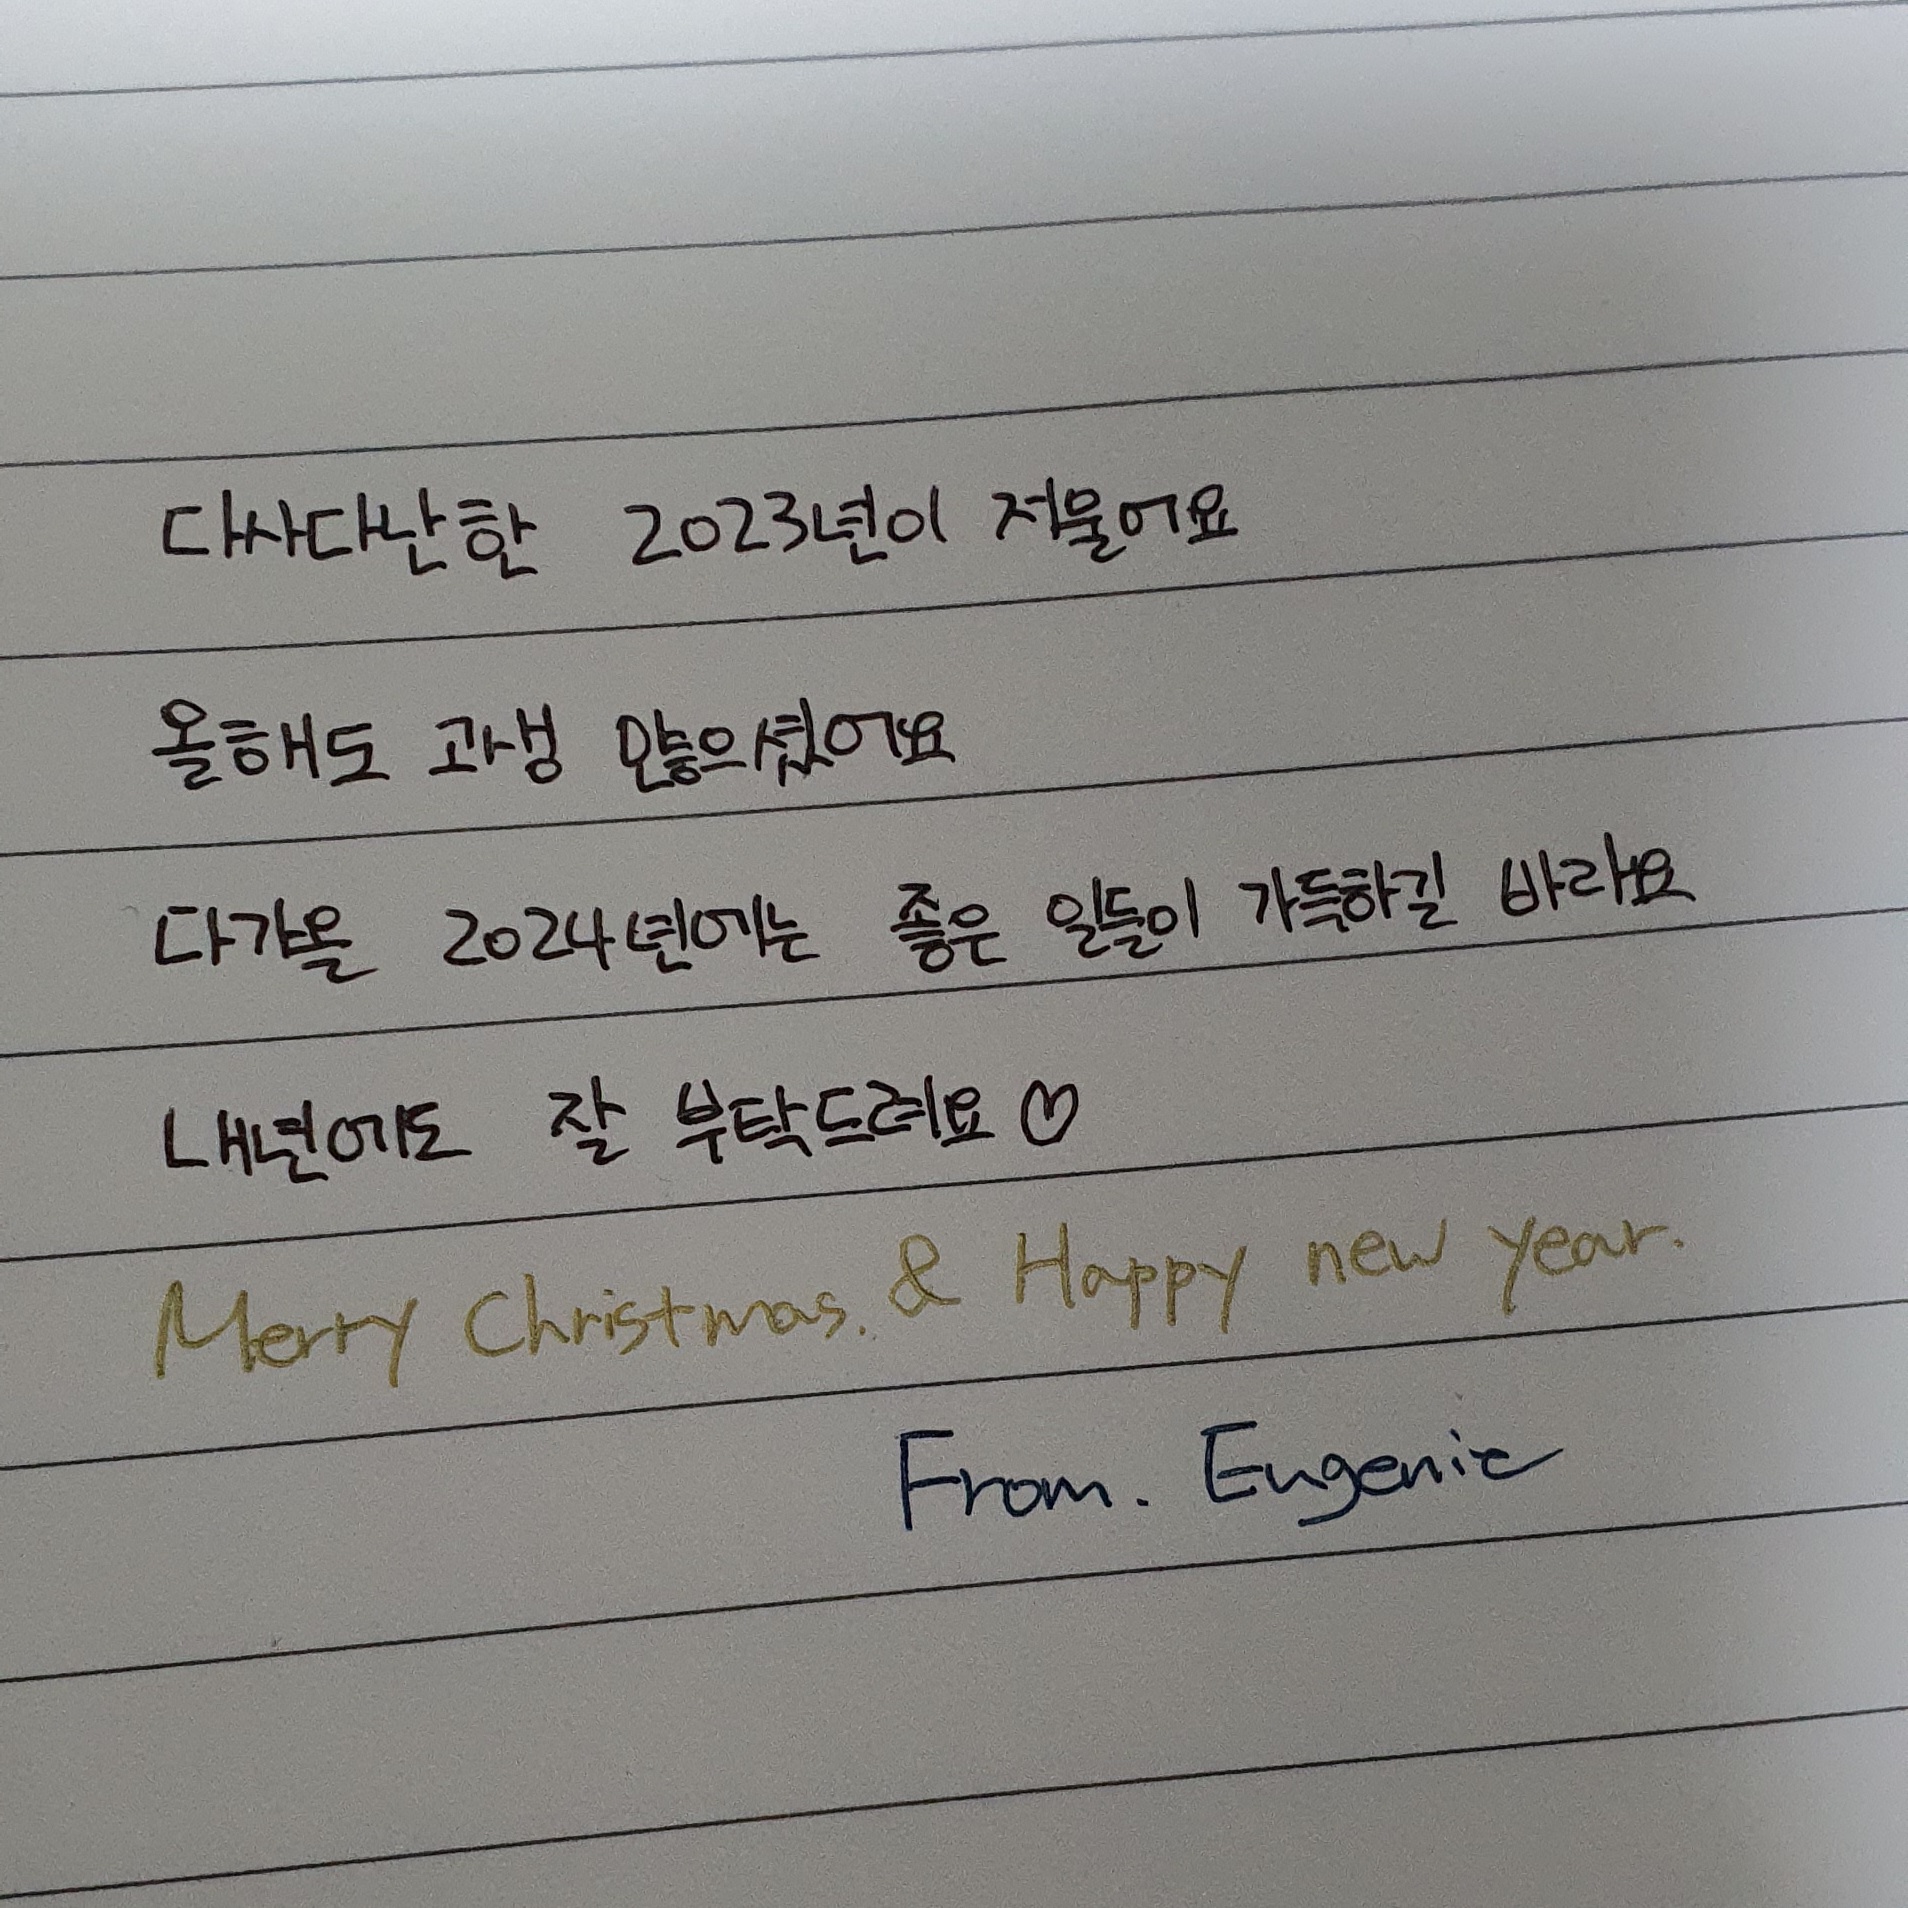 다사다난한 2023년이 저물어요
올해도 고생 많으셨어요
다가올 2024년에는 좋은 일들이 가득하길 바라요
내년에도 잘 부탁드려요♡
Merry Christmas. & Happy new year.
From. Eugenie